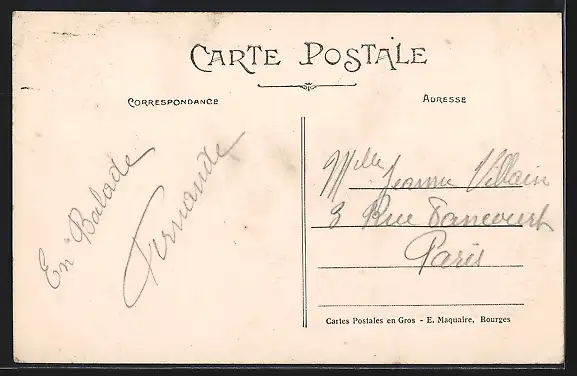 CARTE POSTALE
CORRESPONDANCE
ADRESSE
En Balade
Fernande
Mlle Jeanne Villain
3 Rue Dancourt
Paris
Cartes Postales en Gros - E. Maquaire, Bourges